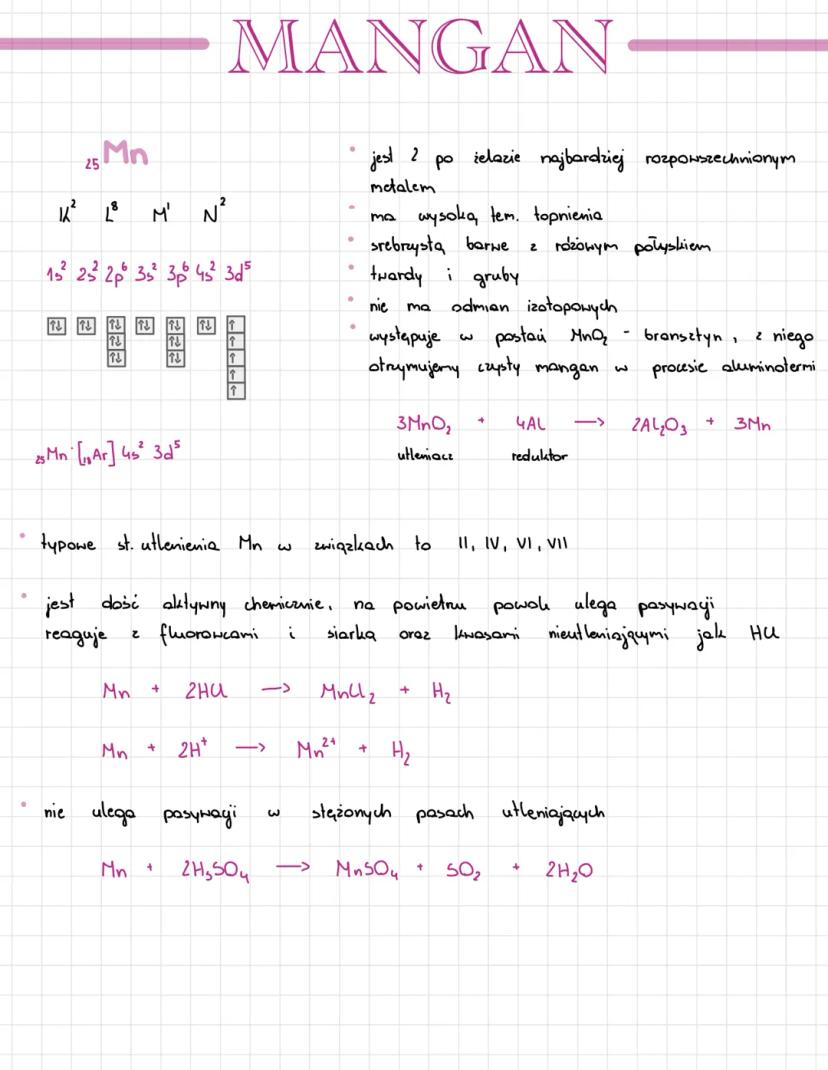 MANGAN
₂₅Mn
K² L⁸ M¹ N²
1s² 2s² 2p⁶ 3s² 3p⁶ 4s² 3d⁵
₂₅Mn: [₁₈Ar] 4s² 3d⁵
• jest 2 po żelazie najbardziej rozpowszechnionym
metalem
• ma wysoką tem. topnienia
• srebrzystą barwe z różowym połyskiem
• twardy i gruby
• nie ma odmian izotopowych
• występuje w postaci MnO₂ - bransztyn, z niego
otrzymujemy czysty mangan w procesie aluminotermi
3MnO₂ + 4Al —> 2Al₂O₃ + 3Mn
utleniacz reduktor
• typowe st. utlenienia Mn w związkach to II, IV, VI, VII
• jest dość aktywny chemicznie, na powietrzu powoli ulega pasywacji
reaguje z fluorowcami i siarką oraz kwasami nieutleniającymi jak HCl
Mn + 2HCl —> MnCl₂ + H₂
Mn + 2H⁺ —> Mn²⁺ + H₂
• nie ulega pasywacji w stężonych pasach utleniających
Mn + 2H₂SO₄ —> MnSO₄ + SO₂ + 2H₂O